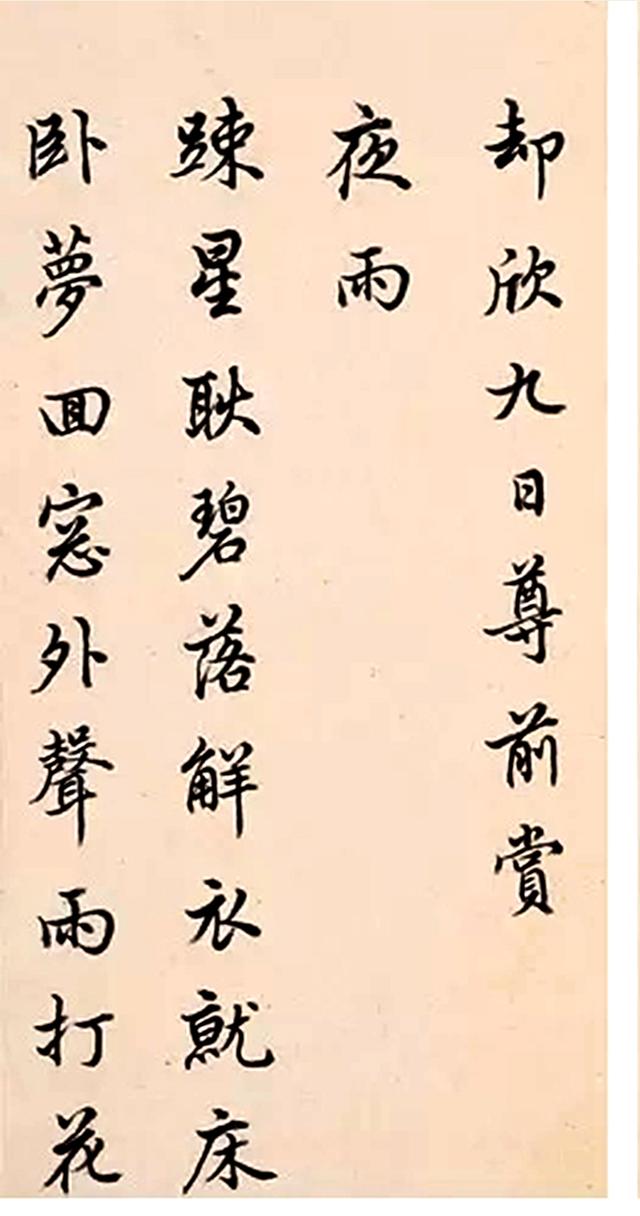 却欣九日尊前賞
夜雨
踈星耿碧落解衣就床
卧夢回窓外聲雨打花